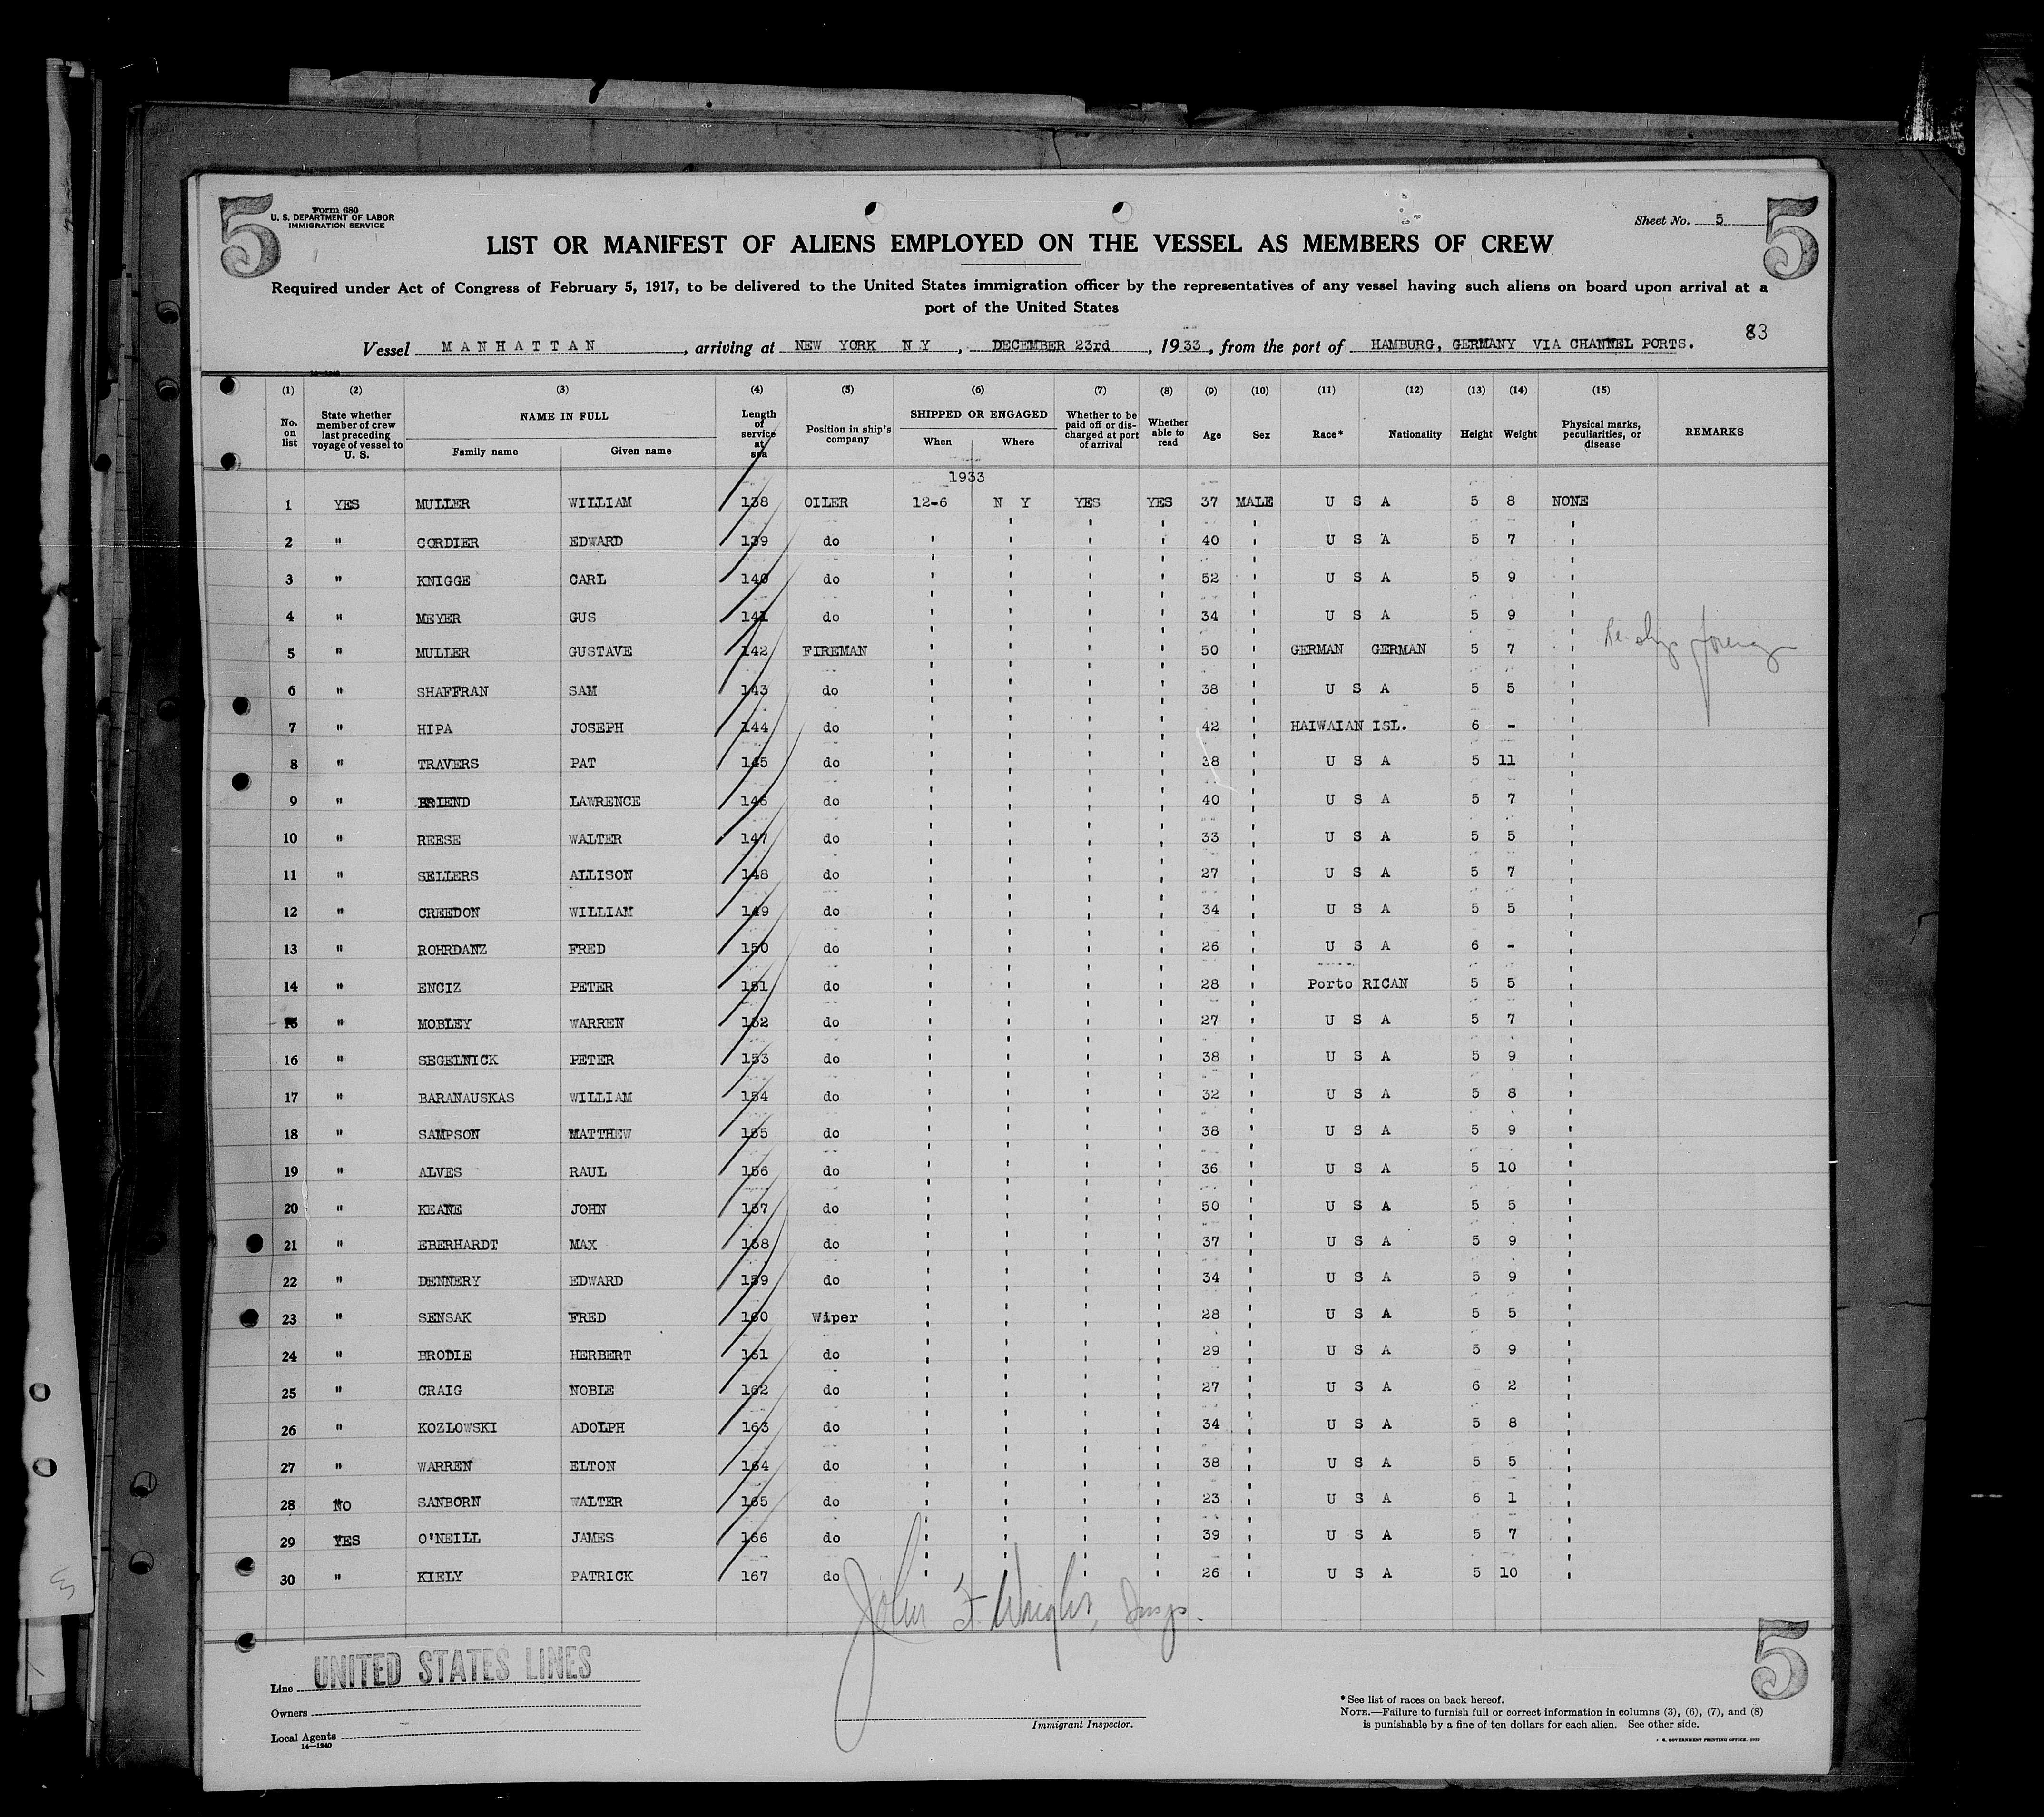 5
Form 680
U. S. DEPARTMENT OF LABOR
IMMIGRATION SERVICE
Sheet No. 5
5
LIST OR MANIFEST OF ALIENS EMPLOYED ON THE VESSEL AS MEMBERS OF CREW
Required under Act of Congress of February 5, 1917, to be delivered to the United States immigration officer by the representatives of any vessel having such aliens on board upon arrival at a
port of the United States
83
Vessel MANHATTAN, arriving at NEW YORK N Y, DECEMBER 23rd, 1933, from the port of HAMBURG, GERMANY VIA CHANNEL PORTS.
14-1240
(1) (2) (3) (4) (5) (6) (7) (8) (9) (10) (11) (12) (13) (14) (15)
No. on list State whether member of crew last preceding voyage of vessel to U. S. NAME IN FULL Family name Given name Length of service at sea Position in ship's company SHIPPED OR ENGAGED When Where Whether to be paid off or discharged at port of arrival Whether able to read Age Sex Race* Nationality Height Weight Physical marks, peculiarities, or disease REMARKS
1933
1 YES MULLER WILLIAM 138 OILER 12-6 N Y YES YES 37 MALE U S A 5 8 NONE
2 " CORDIER EDWARD 139 do ' ' ' ' 40 ' U S A 5 7 '
3 " KNIGGE CARL 140 do ' ' ' ' 52 ' U S A 5 9 '
4 " MEYER GUS 141 do ' ' ' ' 34 ' U S A 5 9 '
5 " MULLER GUSTAVE 142 FIREMAN ' ' ' ' 50 ' GERMAN GERMAN 5 7 ' Re-ship foreign
6 " SHAFFRAN SAM 143 do ' ' ' ' 38 ' U S A 5 5 '
7 " HIPA JOSEPH 144 do ' ' ' ' 42 ' HAIWAIAN ISL. 6 - '
8 " TRAVERS PAT 145 do ' ' ' ' 38 ' U S A 5 11 '
9 " BRIEND LAWRENCE 146 do ' ' ' ' 40 ' U S A 5 7 '
10 " REESE WALTER 147 do ' ' ' ' 33 ' U S A 5 5 '
11 " SELLERS ALLISON 148 do ' ' ' ' 27 ' U S A 5 7 '
12 " CREEDON WILLIAM 149 do ' ' ' ' 34 ' U S A 5 5 '
13 " ROHRDANZ FRED 150 do ' ' ' ' 26 ' U S A 6 - '
14 " ENCIZ PETER 151 do ' ' ' ' 28 ' Porto RICAN 5 5 '
15 " MOBLEY WARREN 152 do ' ' ' ' 27 ' U S A 5 7 '
16 " SEGELNICK PETER 153 do ' ' ' ' 38 ' U S A 5 9 '
17 " BARANAUSKAS WILLIAM 154 do ' ' ' ' 32 ' U S A 5 8 '
18 " SAMPSON MATTHEW 155 do ' ' ' ' 38 ' U S A 5 9 '
19 " ALVES RAUL 156 do ' ' ' ' 36 ' U S A 5 10 '
20 " KEANE JOHN 157 do ' ' ' ' 50 ' U S A 5 5 '
21 " EBERHARDT MAX 158 do ' ' ' ' 37 ' U S A 5 9 '
22 " DENNERY EDWARD 159 do ' ' ' ' 34 ' U S A 5 9 '
23 " SENSAK FRED 160 Wiper ' ' ' ' 28 ' U S A 5 5 '
24 " BRODIE HERBERT 161 do ' ' ' ' 29 ' U S A 5 9 '
25 " CRAIG NOBLE 162 do ' ' ' ' 27 ' U S A 6 2 '
26 " KOZLOWSKI ADOLPH 163 do ' ' ' ' 34 ' U S A 5 8 '
27 " WARREN ELTON 164 do ' ' ' ' 38 ' U S A 5 5 '
28 NO SANBORN WALTER 165 do ' ' ' ' 23 ' U S A 6 1 '
29 YES O'NEILL JAMES 166 do ' ' ' ' 39 ' U S A 5 7 '
30 " KIELY PATRICK 167 do ' ' ' ' 26 ' U S A 5 10 '
John F. Wright, Insp.
Line UNITED STATES LINES
Owners
Local Agents
14-1240
Immigrant Inspector.
5
* See list of races on back hereof.
NOTE.—Failure to furnish full or correct information in columns (3), (6), (7), and (8)
is punishable by a fine of ten dollars for each alien. See other side.
GOVERNMENT PRINTING OFFICE.